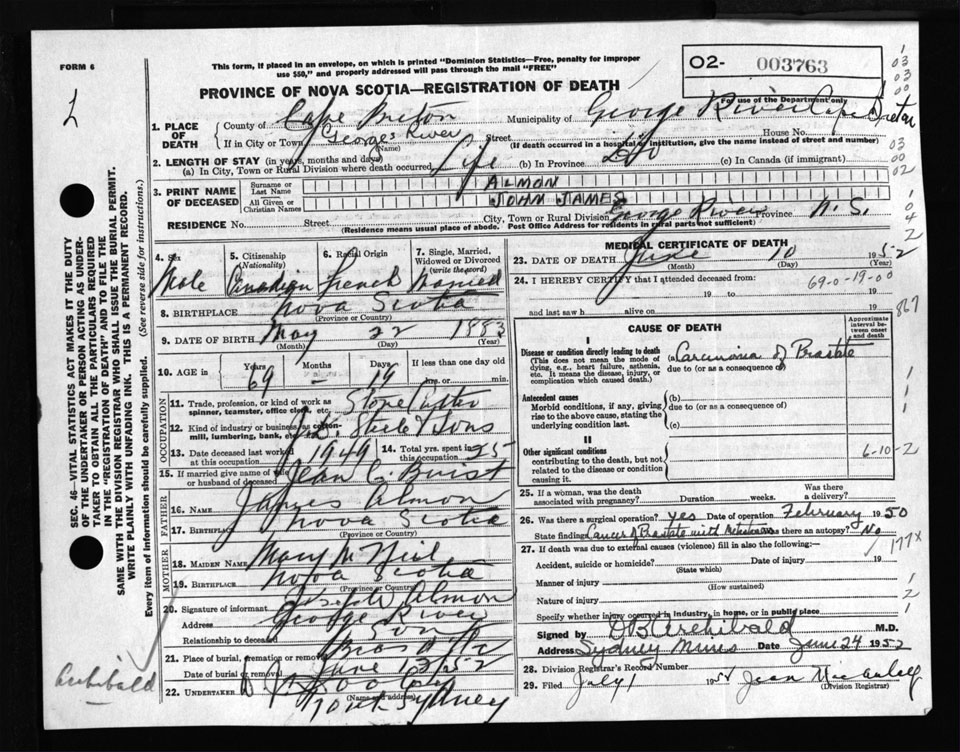 FORM 6
This form, if placed in an envelope, on which is printed "Dominion Statistics—Free, penalty for improper
use $50," and properly addressed will pass through the mail "FREE"
O2- 003763
For use of the Department only
PROVINCE OF NOVA SCOTIA—REGISTRATION OF DEATH
1. PLACE OF DEATH
County of Cape Breton Municipality of George River Cape Breton
If in City or Town Georges River Street House No.
(Name) (If death occurred in a hospital or institution, give the name instead of street and number)
2. LENGTH OF STAY (in years, months and days)
(a) In City, Town or Rural Division where death occurred Life (b) In Province (c) In Canada (if immigrant)
3. PRINT NAME OF DECEASED
Surname or Last Name ALMON
All Given or Christian Names JOHN JAMES
RESIDENCE No. Street City, Town or Rural Division George River Province N. S.
(Residence means usual place of abode. Post Office Address for residents in rural parts not sufficient)
4. Sex Male
5. Citizenship (Nationality) Canadian
6. Racial Origin French
7. Single, Married, Widowed or Divorced (write the word) Married
8. BIRTHPLACE Nova Scotia
(Province or Country)
9. DATE OF BIRTH May 22 1883
(Month) (Day) (Year)
10. AGE in Years 69 Months – Days 19 If less than one day old hrs. or min.
OCCUPATION
11. Trade, profession, or kind of work as spinner, teamster, office clerk, etc. Stone Cutter
12. Kind of industry or business, as cotton-mill, lumbering, bank, etc. Steele & Sons
13. Date deceased last worked at this occupation 1949
14. Total yrs. spent in this occupation 25
15. If married give name of wife or husband of deceased Jean C. Buist
FATHER
16. Name James Almon
17. Birthplace Nova Scotia
MOTHER
18. MAIDEN NAME Mary McNeil
19. BIRTHPLACE Nova Scotia
(Province or Country)
20. Signature of informant Joseph W Almon
Address George River
Relationship to deceased Son
21. Place of burial, cremation or removal
Date of burial or removal June 1952
22. UNDERTAKER
(Name and address)
Sydney
MEDICAL CERTIFICATE OF DEATH
23. DATE OF DEATH June 10 1952
(Month) (Day) (Year)
24. I HEREBY CERTIFY that I attended deceased from:
69-0-19-00
19 to 19
and last saw h alive on 19
CAUSE OF DEATH
Approximate interval between onset and death
I
Disease or condition directly leading to death
(This does not mean the mode of dying, e.g., heart failure, asthenia, etc. It means the disease, injury, or complication which caused death.)
(a) Carcinoma of Prostate
due to (or as a consequence of)
Antecedent causes
Morbid conditions, if any, giving rise to the above cause, stating the underlying condition last.
(b)
due to (or as a consequence of)
(c)
II
Other significant conditions
contributing to the death, but not related to the disease or condition causing it.
6-10-2
25. If a woman, was the death associated with pregnancy? Duration weeks. Was there a delivery?
26. Was there a surgical operation? yes Date of operation February 1950
State findings Cancer of Prostate with Metastases Was there an autopsy? No
27. If death was due to external causes (violence) fill in also the following:
177x
Accident, suicide or homicide? Date of injury 19
(State which)
Manner of injury
(How sustained)
Nature of injury
Specify whether injury occurred in industry, in home, or in public place
Signed by D B Archibald M.D.
Address Sydney Mines Date June 24 1952
28. Division Registrar's Record Number
29. Filed July 1 19 Jean
(Division Registrar)
SEC. 46—VITAL STATISTICS ACT MAKES IT THE DUTY
OF THE UNDERTAKER OR PERSON ACTING AS UNDER-
TAKER TO OBTAIN ALL THE PARTICULARS REQUIRED
IN THE "REGISTRATION OF DEATH" AND TO FILE THE
SAME WITH THE DIVISION REGISTRAR WHO SHALL ISSUE THE BURIAL PERMIT.
WRITE PLAINLY WITH UNFADING INK. THIS IS A PERMANENT RECORD.
Every item of information should be carefully supplied. (See reverse side for instructions.)
Archibald
867